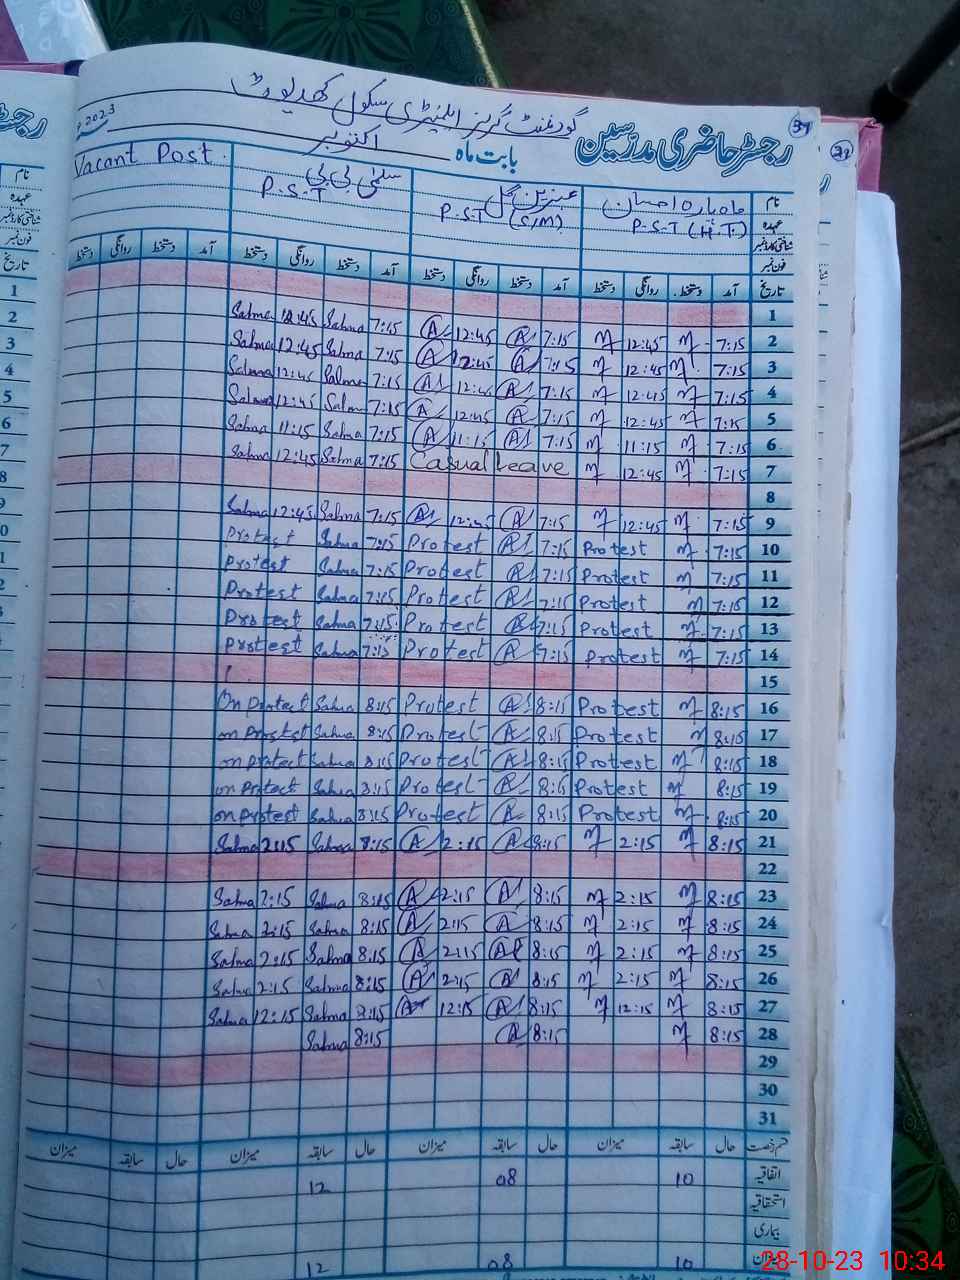 گورنمنٹ گرلز ایلمنٹری سکول
رجسٹر حاضری مدرسین
بابت ماہ اکتوبر 2023
نام ماہ پارہ احسان عنبرین گل سلمیٰ بی بی Vacant Post
عہدہ P.S.T (H.T.) P.S.T (S/M) P.S.T
شناختی کارڈ نمبر
فون نمبر
تاریخ آمد دستخط روانگی دستخط آمد دستخط روانگی دستخط آمد دستخط روانگی دستخط آمد دستخط روانگی دستخط
1
Salma 12:45 Salma 7:15 A 12:45 A 7:15 m 12:45 m 7:15 2
Salma 12:45 Salma 7:15 A 12:45 A 7:15 m 12:45 m 7:15 3
Salma 12:45 Salma 7:15 A 12:45 A 7:15 m 12:45 m 7:15 4
Salma 12:45 Salma 7:15 A 12:45 A 7:15 m 12:45 m 7:15 5
Salma 11:15 Salma 7:15 A 11:15 A 7:15 m 11:15 m 7:15 6
Salma 12:45 Salma 7:15 Casual Leave m 12:45 m 7:15 7
8
Salma 12:45 Salma 7:15 A 12:45 A 7:15 m 12:45 m 7:15 9
Protest Salma 7:15 Protest A 7:15 Protest m 7:15 10
Protest Salma 7:15 Protest A 7:15 Protest m 7:15 11
Protest Salma 7:15 Protest A 7:15 Protest m 7:15 12
Protest Salma 7:15 Protest A 7:15 Protest m 7:15 13
Protest Salma 7:15 Protest A 7:15 Protest m 7:15 14
15
On Protest Salma 8:15 Protest A 8:15 Protest m 8:15 16
on Protest Salma 8:15 Protest A 8:15 Protest m 8:15 17
on Protest Salma 8:15 Protest A 8:15 Protest m 8:15 18
on Protest Salma 8:15 Protest A 8:15 Protest m 8:15 19
on Protest Salma 8:15 Protest A 8:15 Protest m 8:15 20
Salma 2:15 Salma 8:15 A 2:15 A 8:15 m 2:15 m 8:15 21
22
Salma 2:15 Salma 8:15 A 2:15 A 8:15 m 2:15 m 8:15 23
Salma 2:15 Salma 8:15 A 2:15 A 8:15 m 2:15 m 8:15 24
Salma 2:15 Salma 8:15 A 2:15 A 8:15 m 2:15 m 8:15 25
Salma 2:15 Salma 8:15 A 2:15 A 8:15 m 2:15 m 8:15 26
Salma 12:15 Salma 8:15 A 12:15 A 8:15 m 12:15 m 8:15 27
Salma 8:15 A 8:15 m 8:15 28
29
30
31
قسم رخصت سابقہ میزان حال سابقہ میزان حال سابقہ میزان حال سابقہ میزان
اتفاقیہ 10 08 12
استحقاقیہ
بیماری
میزان 10 08 12
28-10-23 10:34